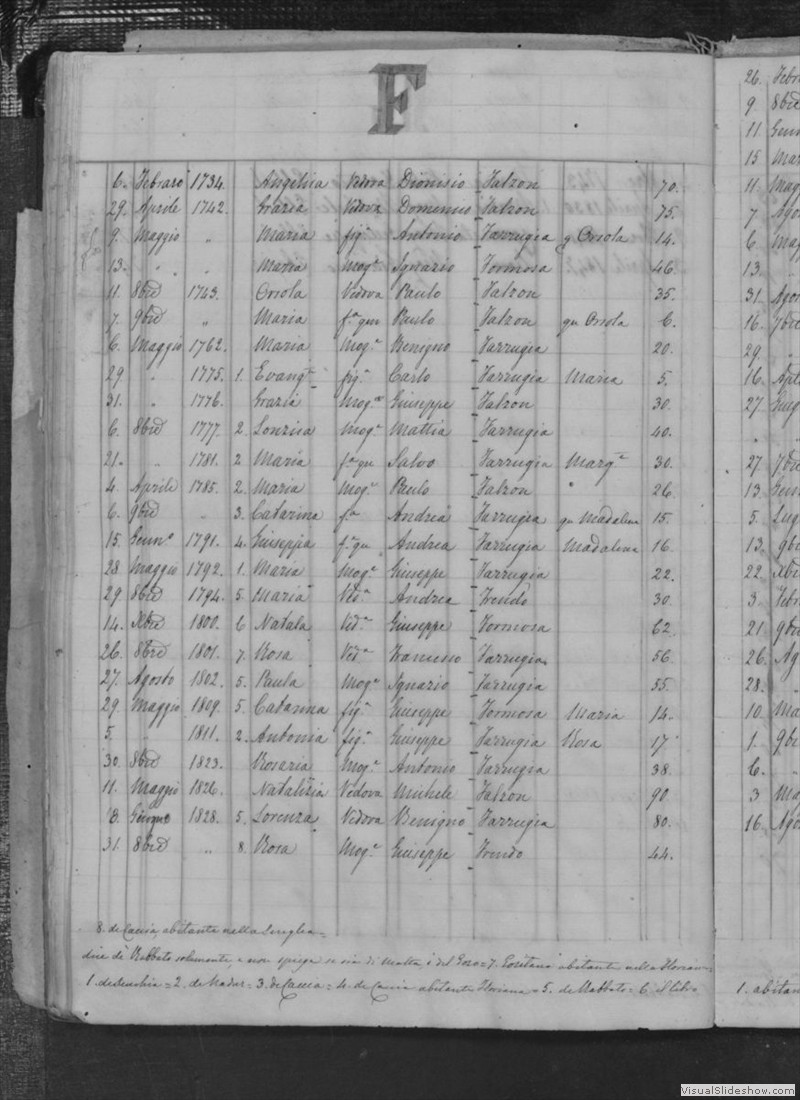 F
6. Febraro 1734. Angelica Vedova Dionisio Falzon 70.
29. Aprile 1742. Grazia Vedova Domenico Falzon 75.
9. Maggio „ Maria fig.ᵃ Antonio Farrugia q Orsola 14.
13. „ „ Maria Mog.ᵉ Ignazio Formosa 46.
11. 8bre 1743. Orsola Vedova Paulo Falzon 35.
7. 9bre „ Maria f.ᵃ qm Paulo Falzon qm Orsola 6.
6. Maggio 1762. Maria Mog.ᵉ Benigno Farrugia 20.
29 „ 1775. 1. Evang.ᵗᵃ fig.ᵃ Carlo Farrugia Maria 5.
31. „ 1776. Grazia Mog.ᵉ Giuseppe Falzon 30.
6. 8bre 1777. 2. Lonzica Mog.ᵉ Mattia Farrugia 40.
21. „ 1781. 2 Maria f.ᵃ qu Salvo Farrugia Marg.ᵗᵃ 30.
4. Aprile 1785. 2. Maria Mog.ᵉ Paulo Falzon „ 26.
6. 9bre „ 3. Catarina f.ᵃ Andrea Farrugia qu Madalena 15.
15. Genn.º 1791. 4. Giuseppa f.ᵃ qu Andrea Farrugia Madalena 16.
28 Maggio 1792. 1. Maria Mog.ᵉ Giuseppe Farrugia 22.
29 8bre 1794. 5 Maria Ved.ᵃ Andrea Frendo 30.
14. Xbre 1800. 6 Natala Ved.ᵃ Giuseppe Formosa 62.
26. 8bre 1801. 7. Rosa Ved.ᵃ Francesco Farrugia 56.
27. Agosto 1802. 5. Paula Mog.ᵉ Ignazio Farrugia 55.
29. Maggio 1809. 5. Catarina fig.ᵃ Giuseppe Formosa Maria 14.
5. „ 1811. 2. Antonia fig.ᵃ Giuseppe Farrugia Rosa 17
30. 8bre 1823. Rosaria Mog.ᵉ Antonio Farrugia 38.
11. Maggio 1826. Natalizia Vedova Michele Falzon 90
8. Giugno 1828. 5. Lorenza Vedova Benigno Farrugia 80.
31. 8bre „ 8. Rosa Mog.ᵉ Giuseppe Frendo 44.
8. de Caccia abitante nella Senglea=
dice di Rabbato solamente, e non spiega se sia di Malta o del Gozo=7. abitante nella Florian=
1. = 2. de Nadur= 3. de Caccia= 4. de Caccia abitante Floriana= 5. de Rabbato= 6. il libro
26. Febr
9 8bre
11 Genn
15 Mar
11. Magg
7. Ago
6. Magg
13. „
31. Agos
16. 7bre
29. „
16. Apr
27 Giug
„ „
27. 7bre
13. Genn
5. Lug
13. 9bre
22. Xbre
3. Febr
21 9bre
26. Ag
28. „
10. Ma
1. 9bre
6. „
3 Ma
16. Ago
1. abitan
VisualSlideshow.com